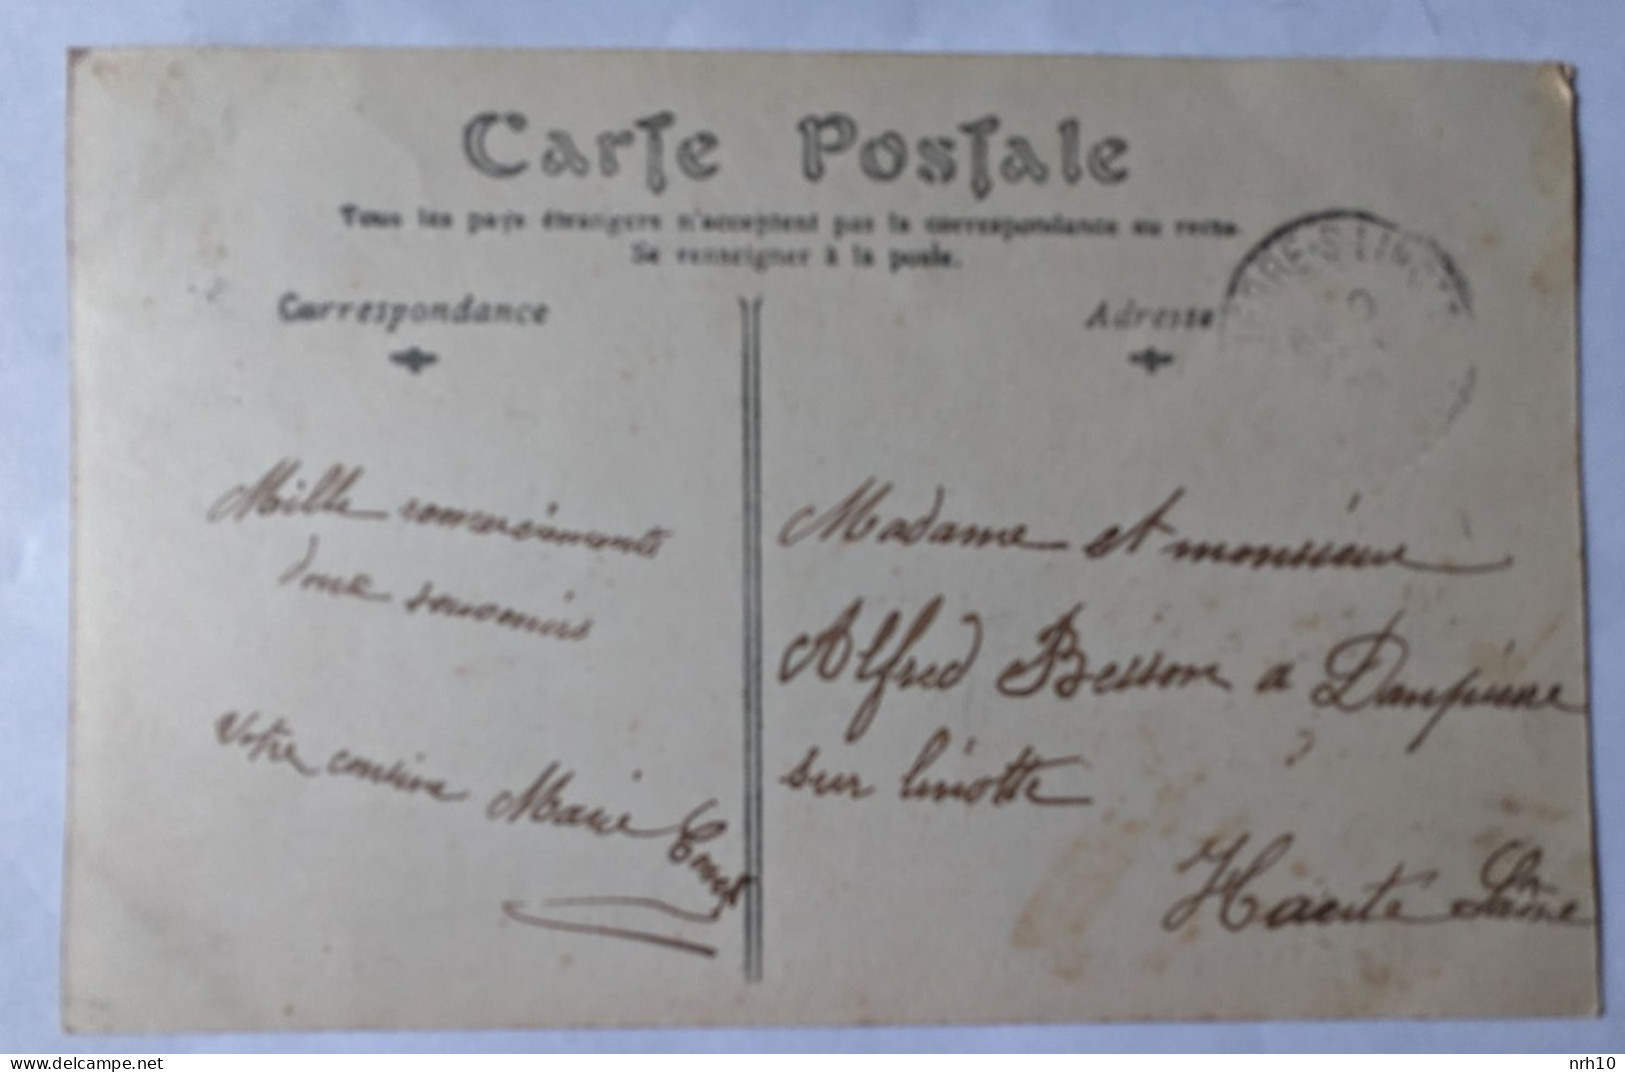 Carte Postale
Tous les pays étrangers n'acceptent pas la correspondance au recto.
Se renseigner à la poste.
Correspondance
Adresse
PIERRE-S-LINOTTE
Mille remerciements
doux souvenirs
Votre cousine Marie
Madame et monsieur
Alfred Besson a Dampierre
sur linotte
Haute Saône
nrh10